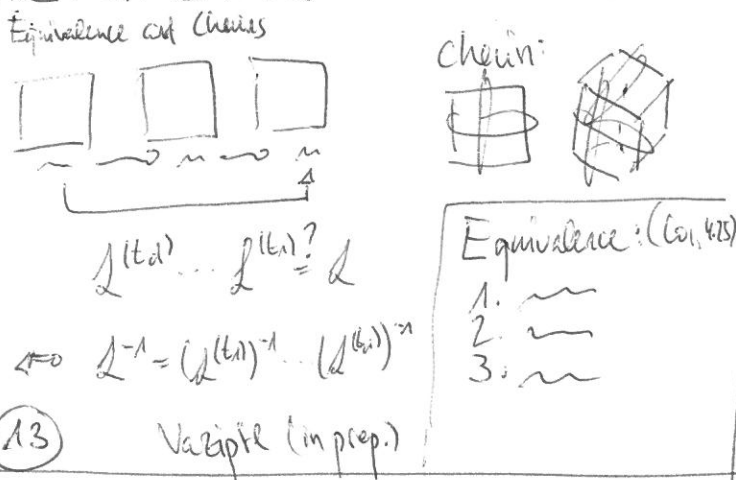 Equivalence and Chains
chain:
ℒ^(t_d) ... ℒ^(t_1) ?= ℒ
⇔ ℒ^-1 = (ℒ^(t_1))^-1 ... (ℒ^(t_d))^-1
Equivalence: (Cor. 4.25)
1.
2.
3.
13
(in prep.)